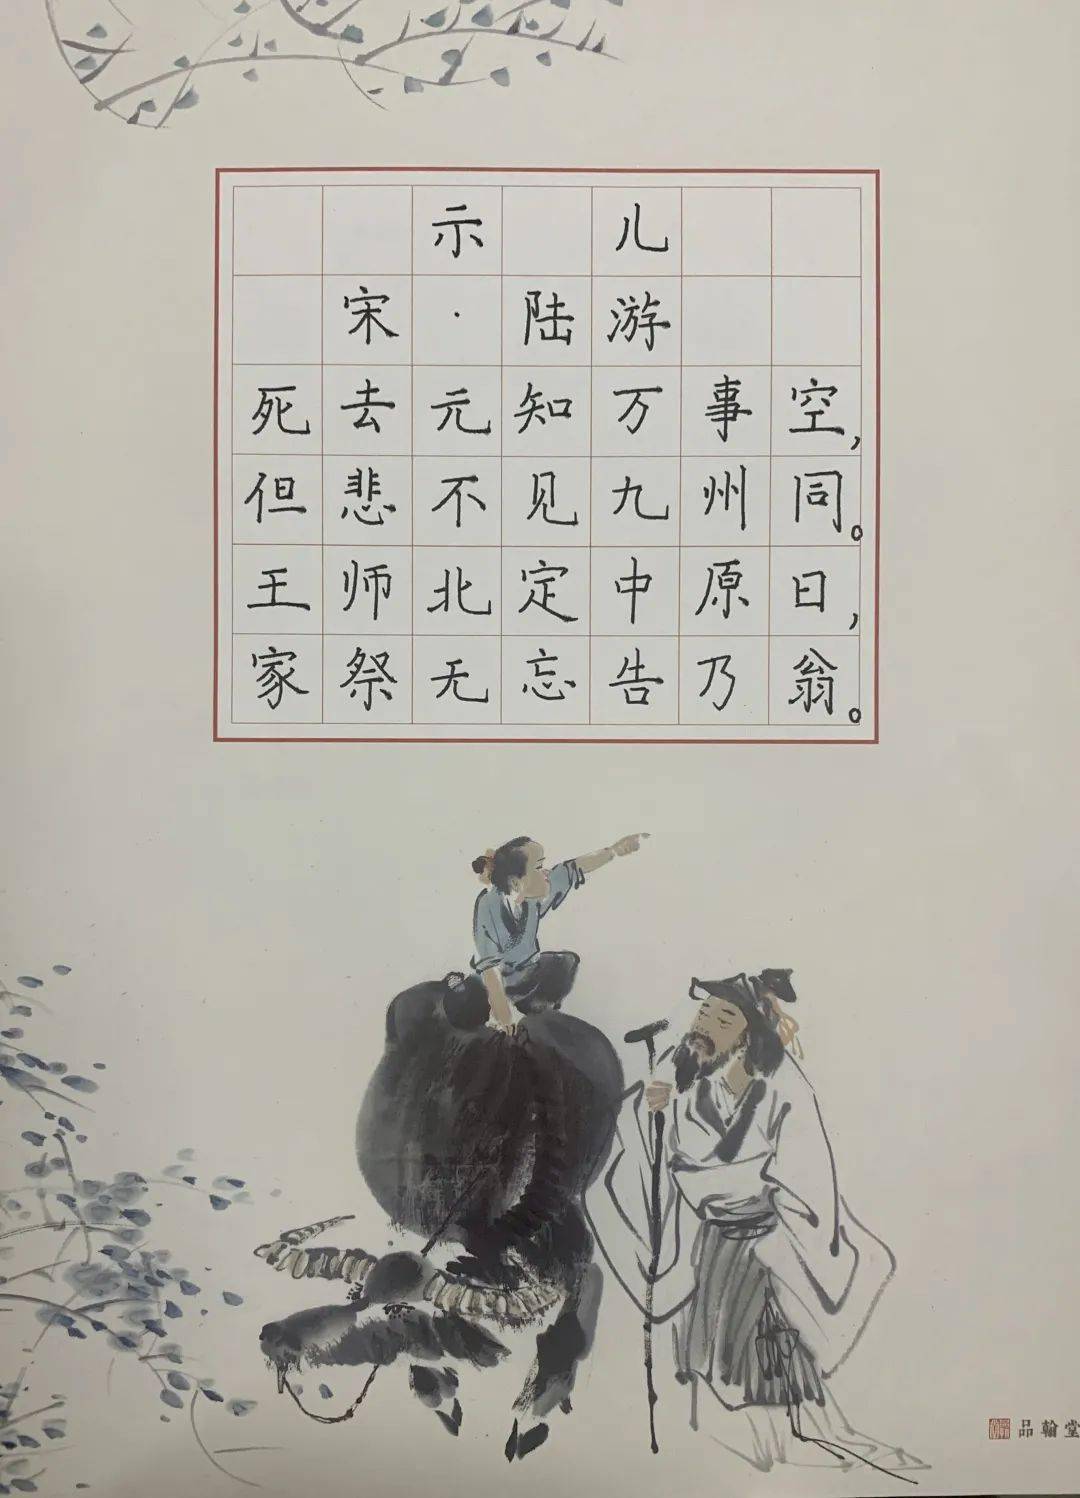 示儿
宋·陆游
死去元知万事空,
但悲不见九州同。
王师北定中原日,
家祭无忘告乃翁。
品翰堂